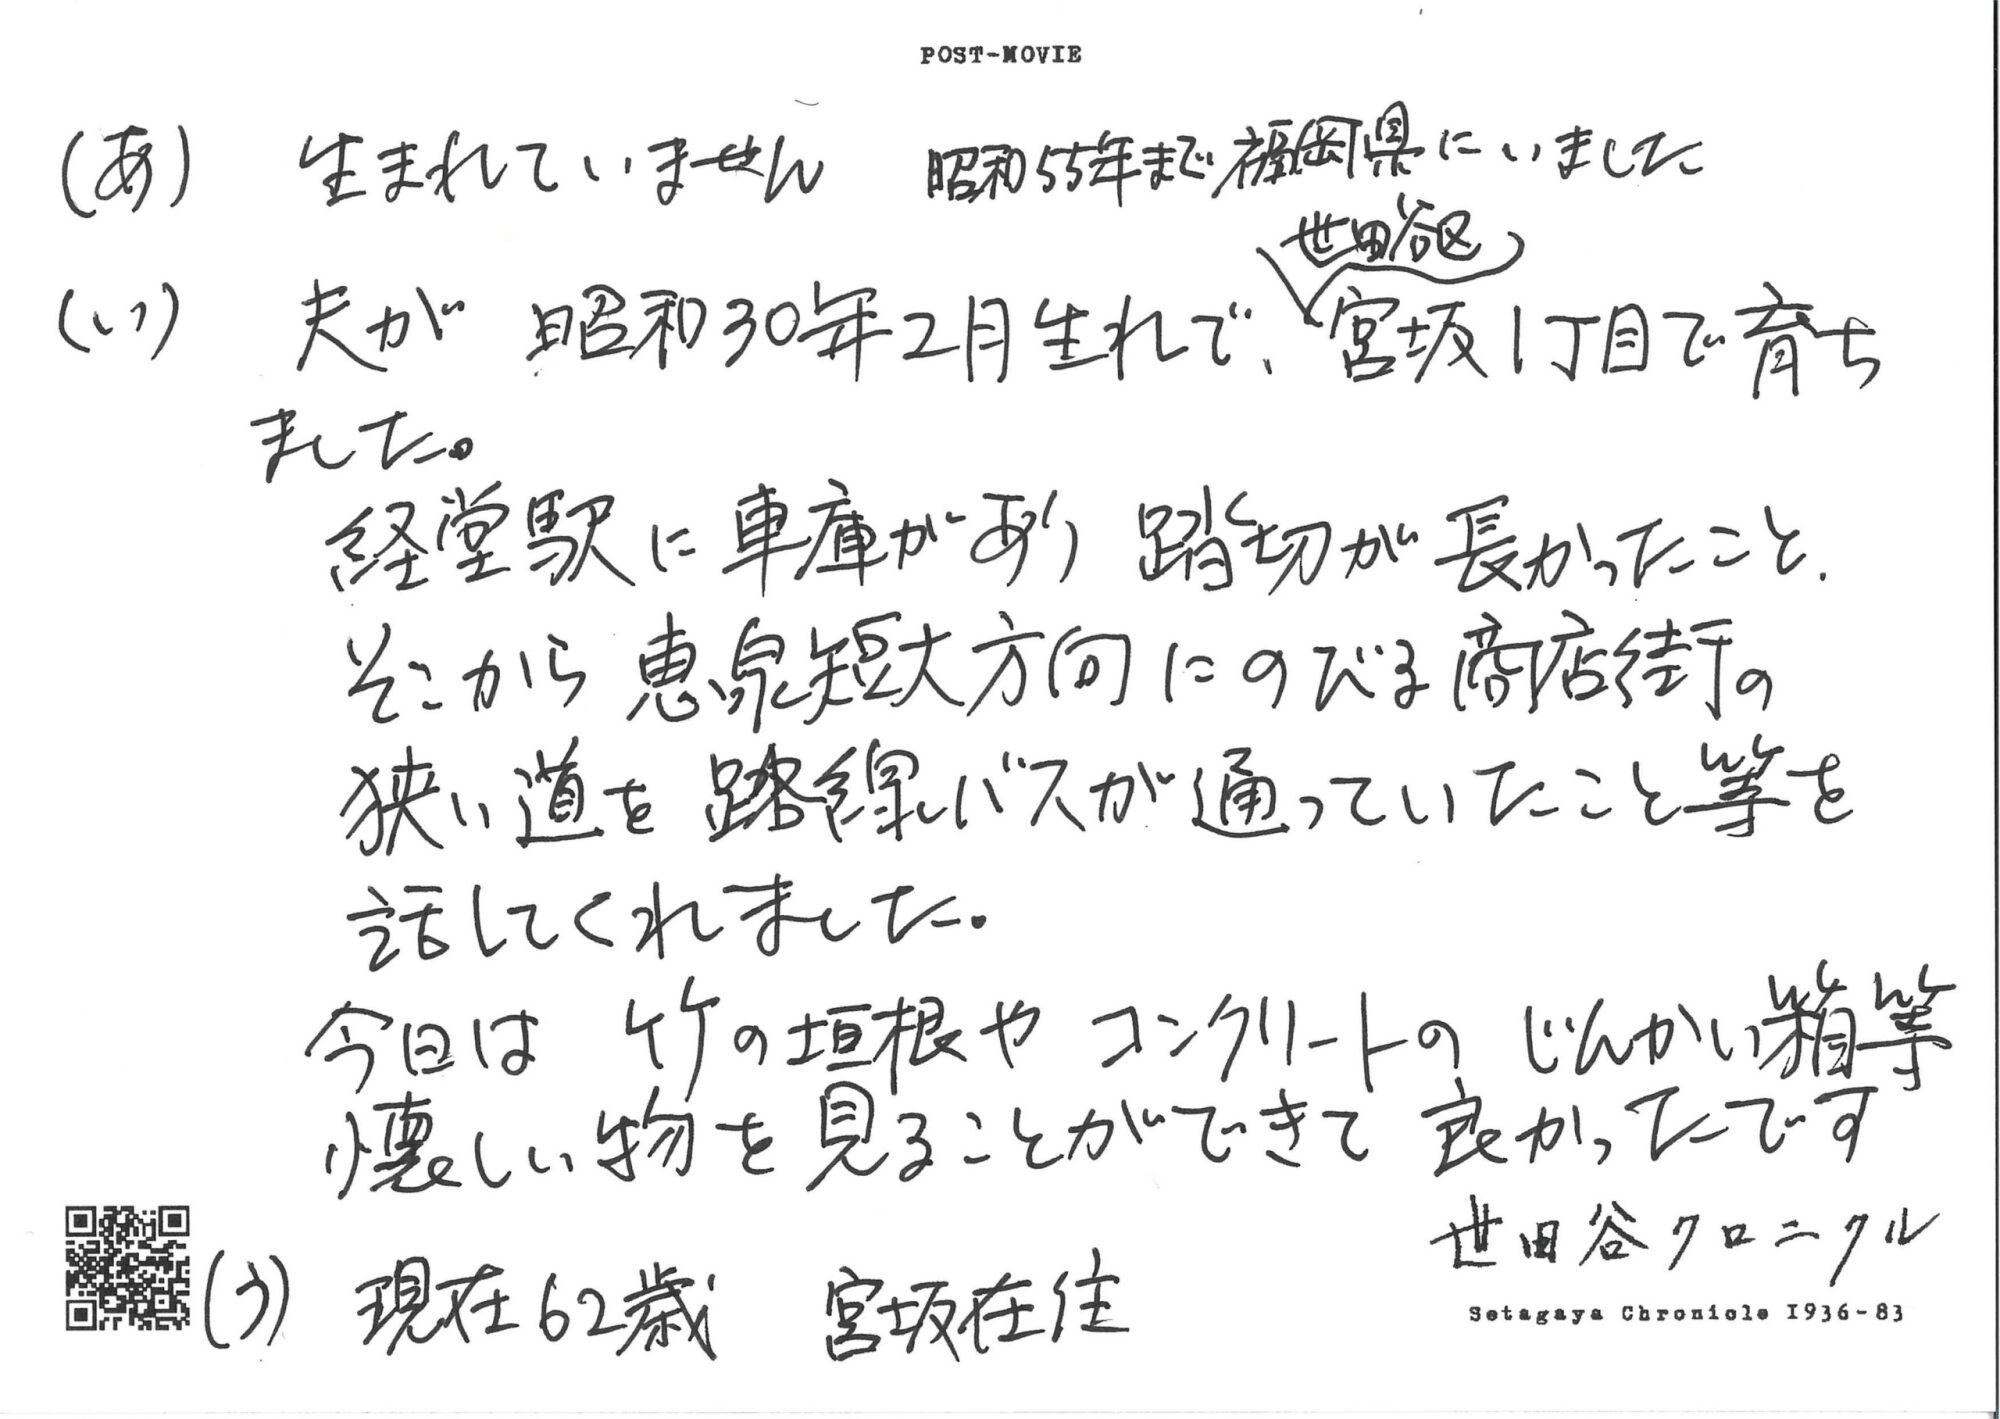 POST-MOVIE
(あ) 生まれていません 昭和55年まで福岡県にいました
(い) 夫が 昭和30年2月生れで、世田谷区宮坂1丁目で育ち
ました。
経堂駅に車庫があり 踏切が長かったこと、
そこから恵泉短大方向にのびる商店街の
狭い道を路線バスが通っていたこと等を
話してくれました。
今日は 竹の垣根や コンクリートの じんかい箱等
懐しい物を見ることができて 良かったです
世田谷クロニクル
Setagaya Chronicle 1936-83
(う) 現在62歳 宮坂在住